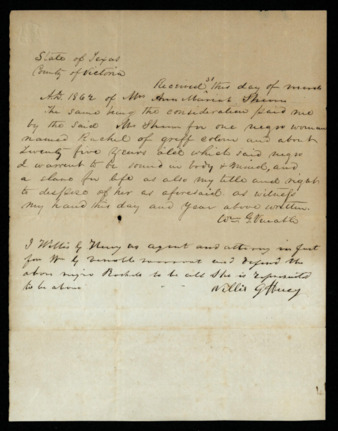 State of Texas
County of Victoria
Received this day of
AD. 1862 of Mrs Ann
The same being the consideration paid me
by the said Mrs for one negro woman
named Rachel of color and about
twenty five years old which said negro
I warrent to be sound in body & mind, and
a slave for life as also my title and right
to dispose of her as aforesaid as witness
my hand this day and year above written
Wm G. Venable
I Willis G as agent and attorney in fact
for Wm G Venable warrant and defend the
above negro to be all she is represented
to be above
Willis G